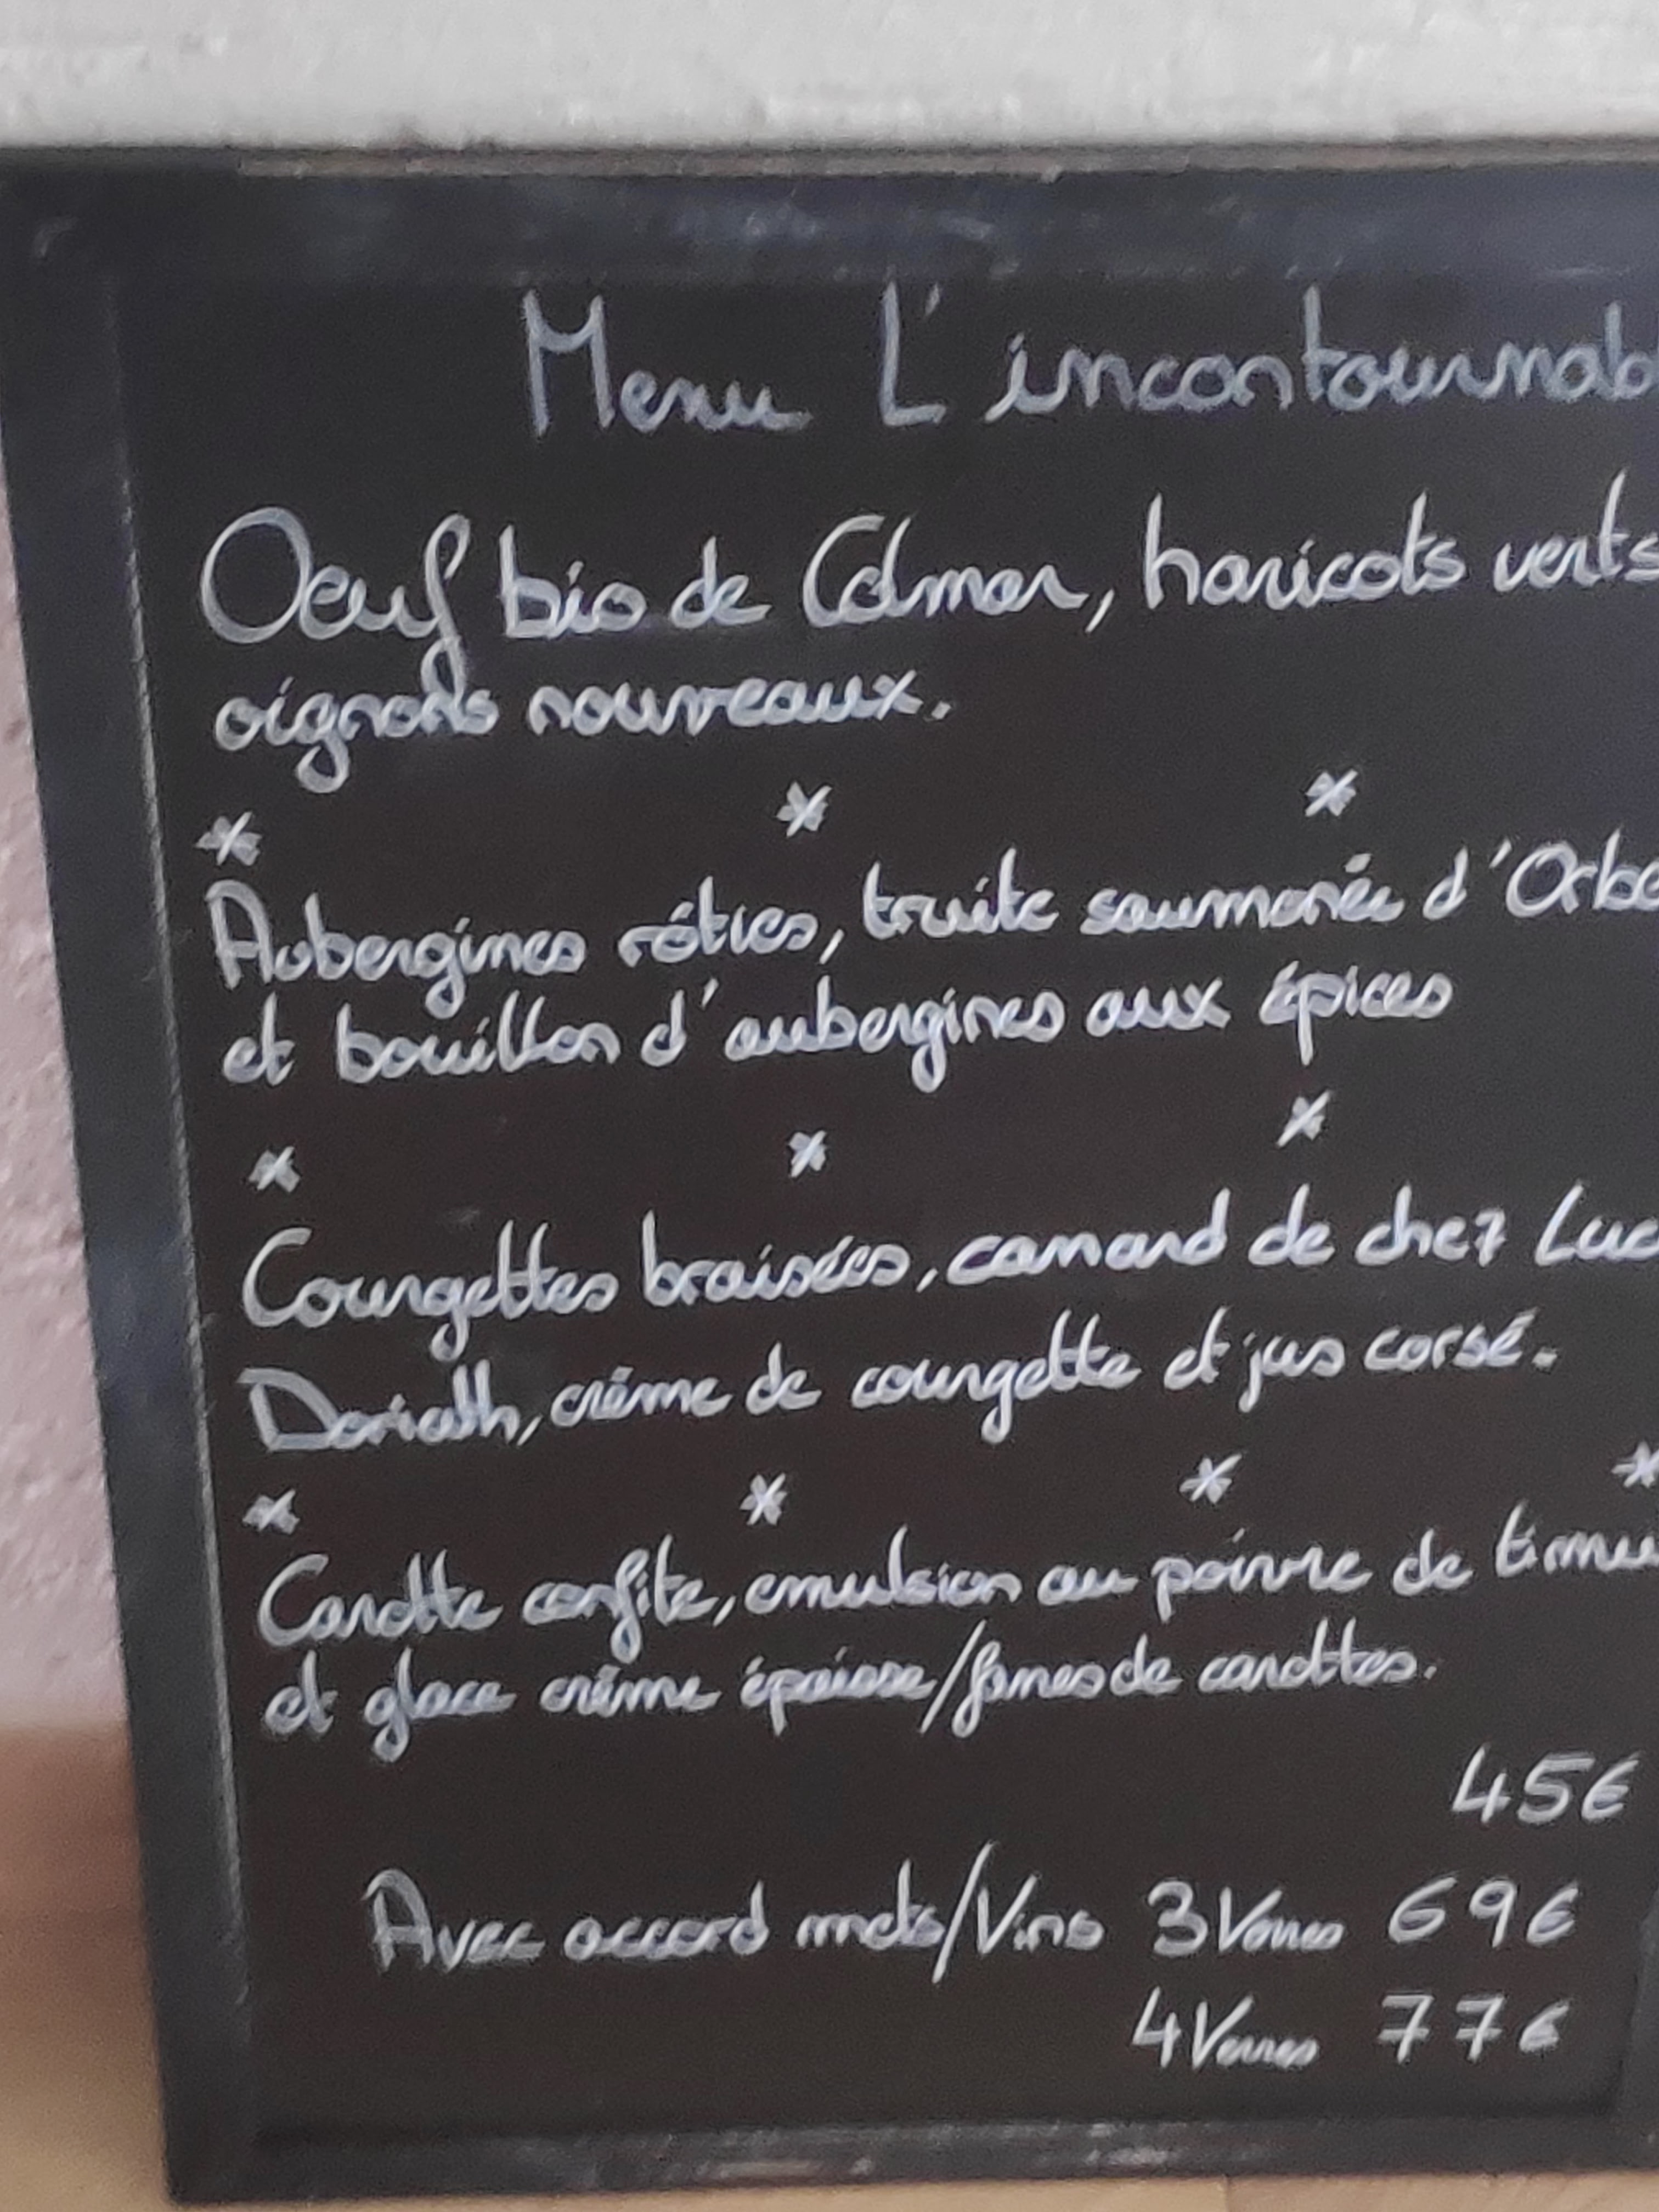 Menu L'incontournab
Oeuf bio de Colmar, haricots verts
oignons nouveaux.
* * *
Aubergines rôties, truite saumonée d'Orbe
et bouillon d'aubergines aux épices
* * *
Courgettes braisées, canard de chez Luc
Doriath, crème de courgette et jus corsé.
* * * *
Carotte confite, emulsion au poivre de timu
et glace crème épaisse/fanes de carottes.
45€
Avec accord mets/Vins 3 Verres 69€
4 Verres 77€